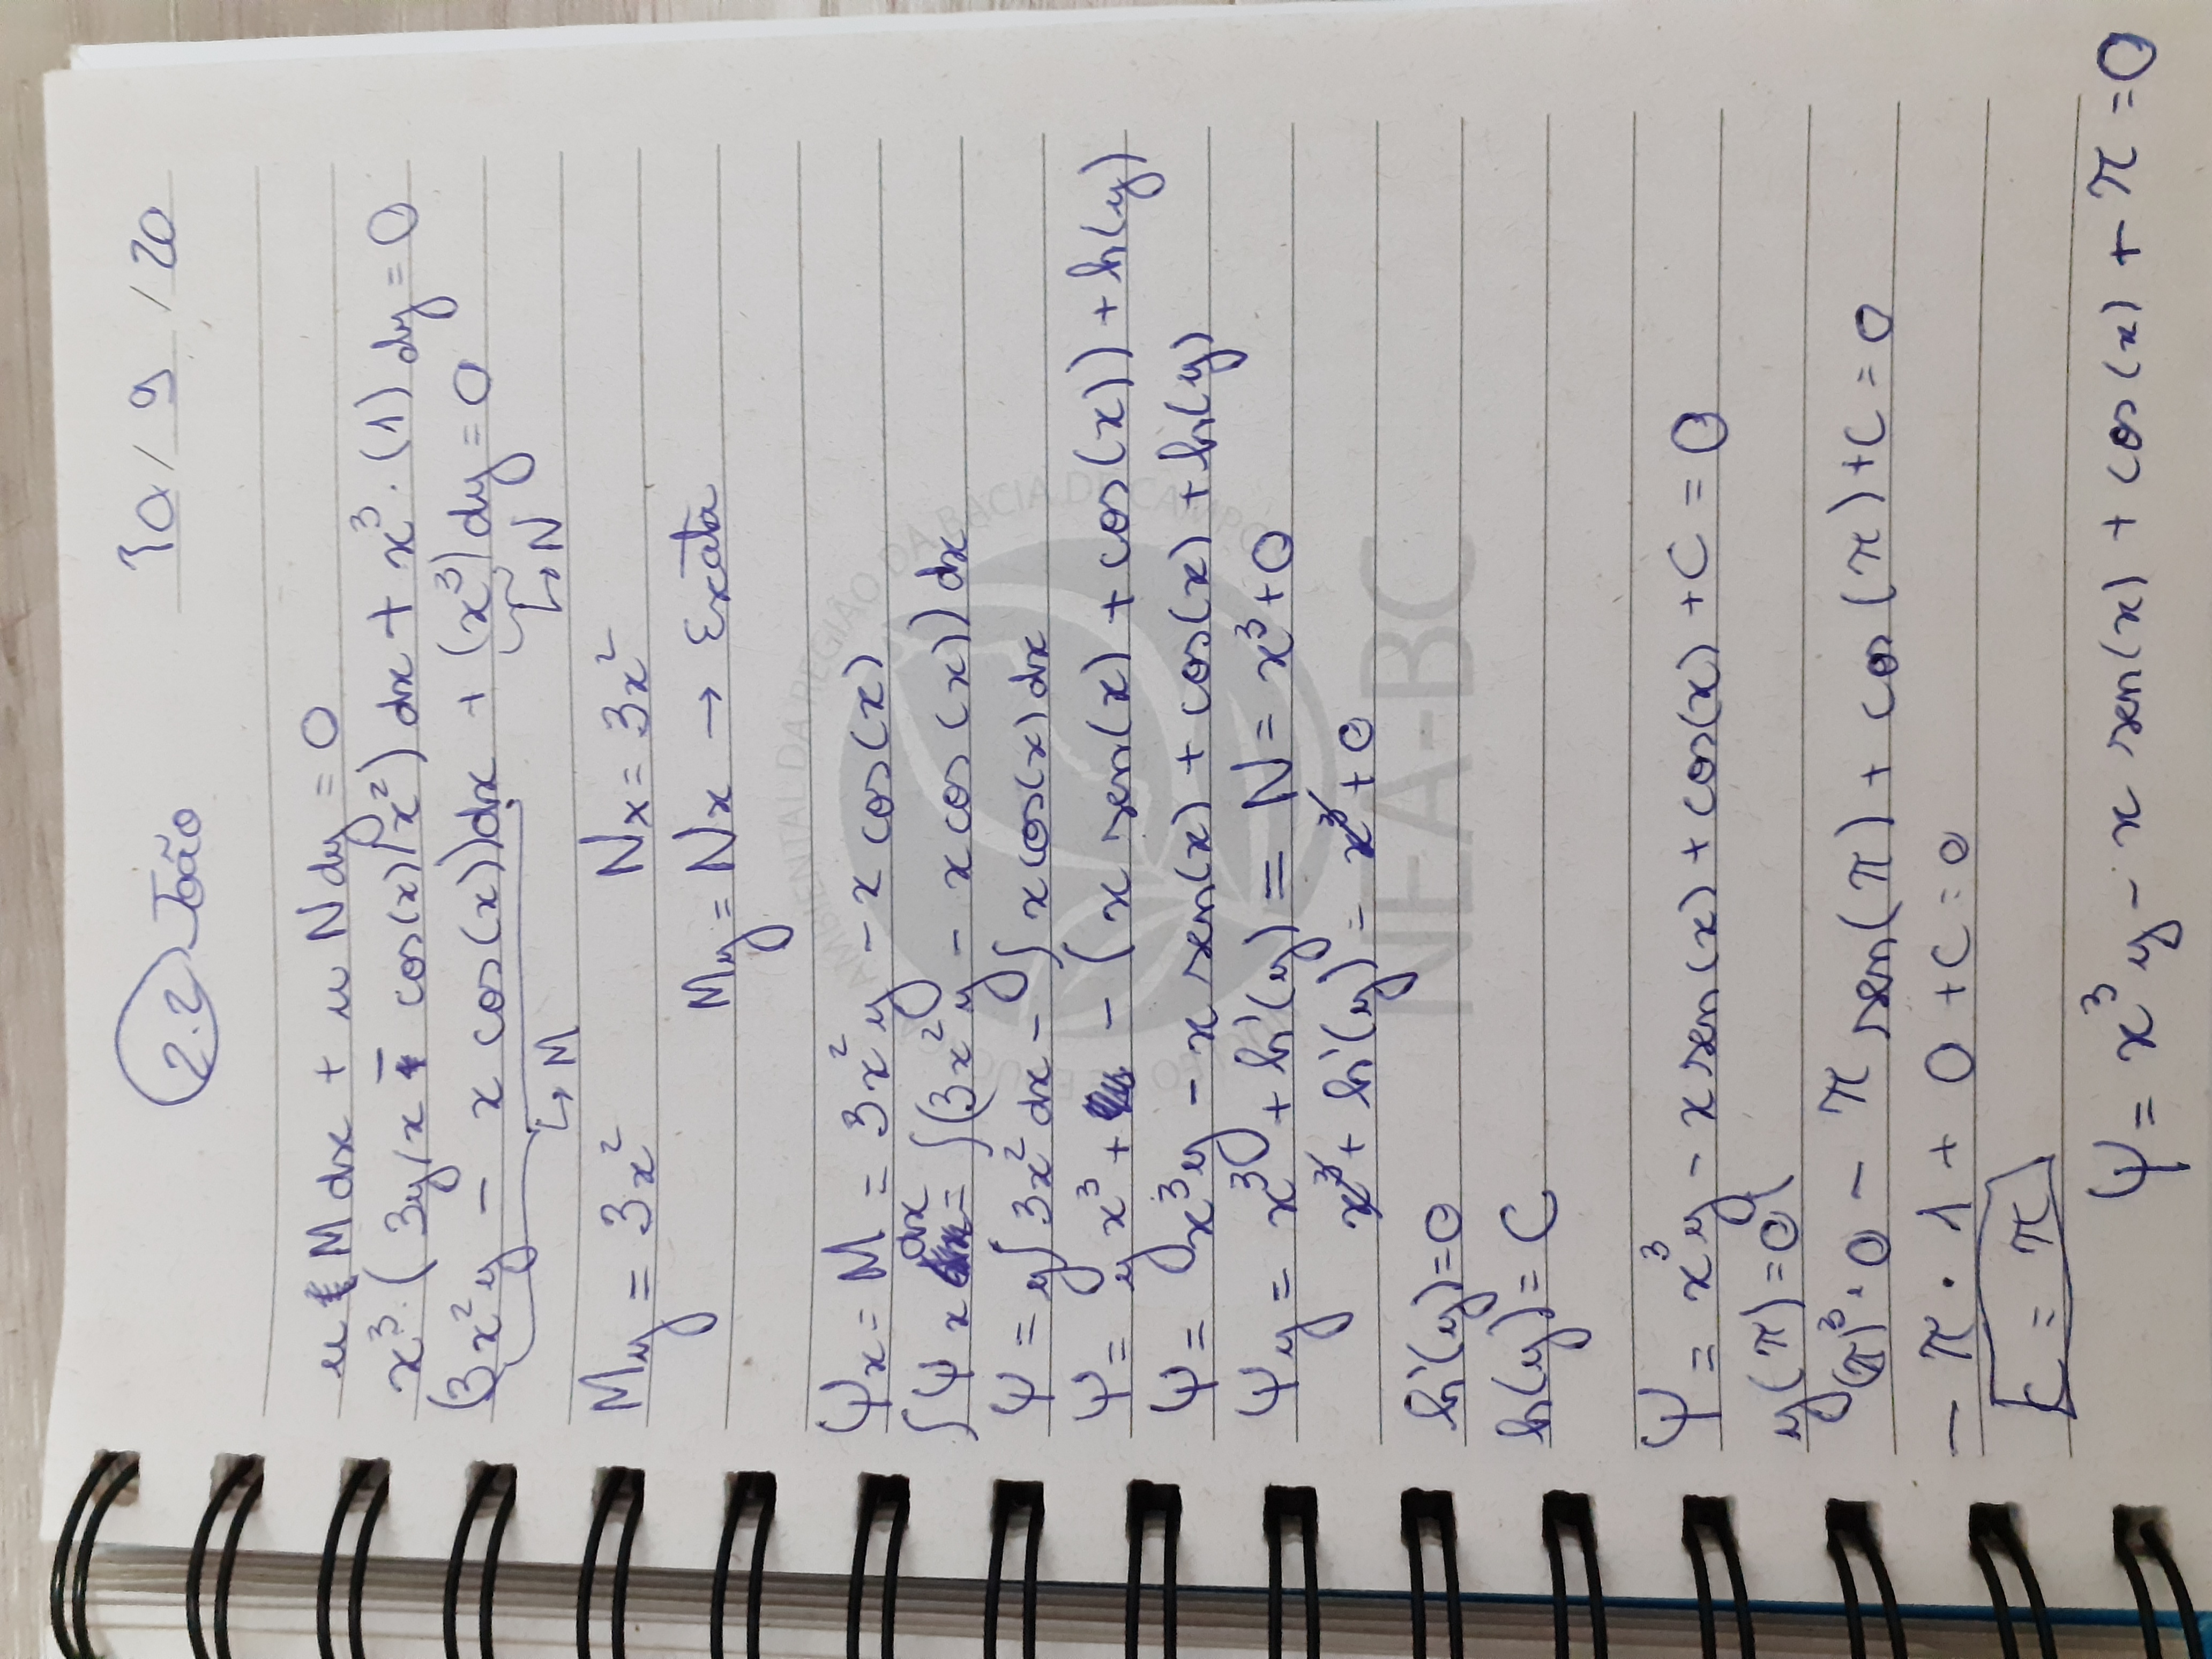 2.2 João 10/9/20
u M dx + u N dy = 0
x³·(3y/x - cos(x)/x²) dx + x³·(1) dy = 0
(3x²y - x cos(x))dx + (x³)dy = 0
↳ M ↳ N
My = 3x² Nx = 3x²
My = Nx → Exata
AMBIENTAL DA REGIÃO DA BACIA DE CAMPOS
Ψx = M = 3x²y - x cos(x)
∫Ψx dx = ∫(3x²y - x cos(x)) dx
Ψ = y∫3x² dx - ∫x cos(x) dx
Ψ = y x³ + - (x sen(x) + cos(x)) + h(y)
Ψ = x³y - x sen(x) + cos(x) + h(y)
Ψy = x³ + h'(y) = N = x³ + 0
x³ + h'(y) = x³ + 0
NEA-BC
h'(y) = 0
h(y) = C
Ψ = x³y - x sen(x) + cos(x) + C = 0
y(π) = 0
(π)³·0 - π sen(π) + cos(π) + C = 0
- π·1 + 0 + C = 0
C = π
Ψ = x³y - x sen(x) + cos(x) + π = 0